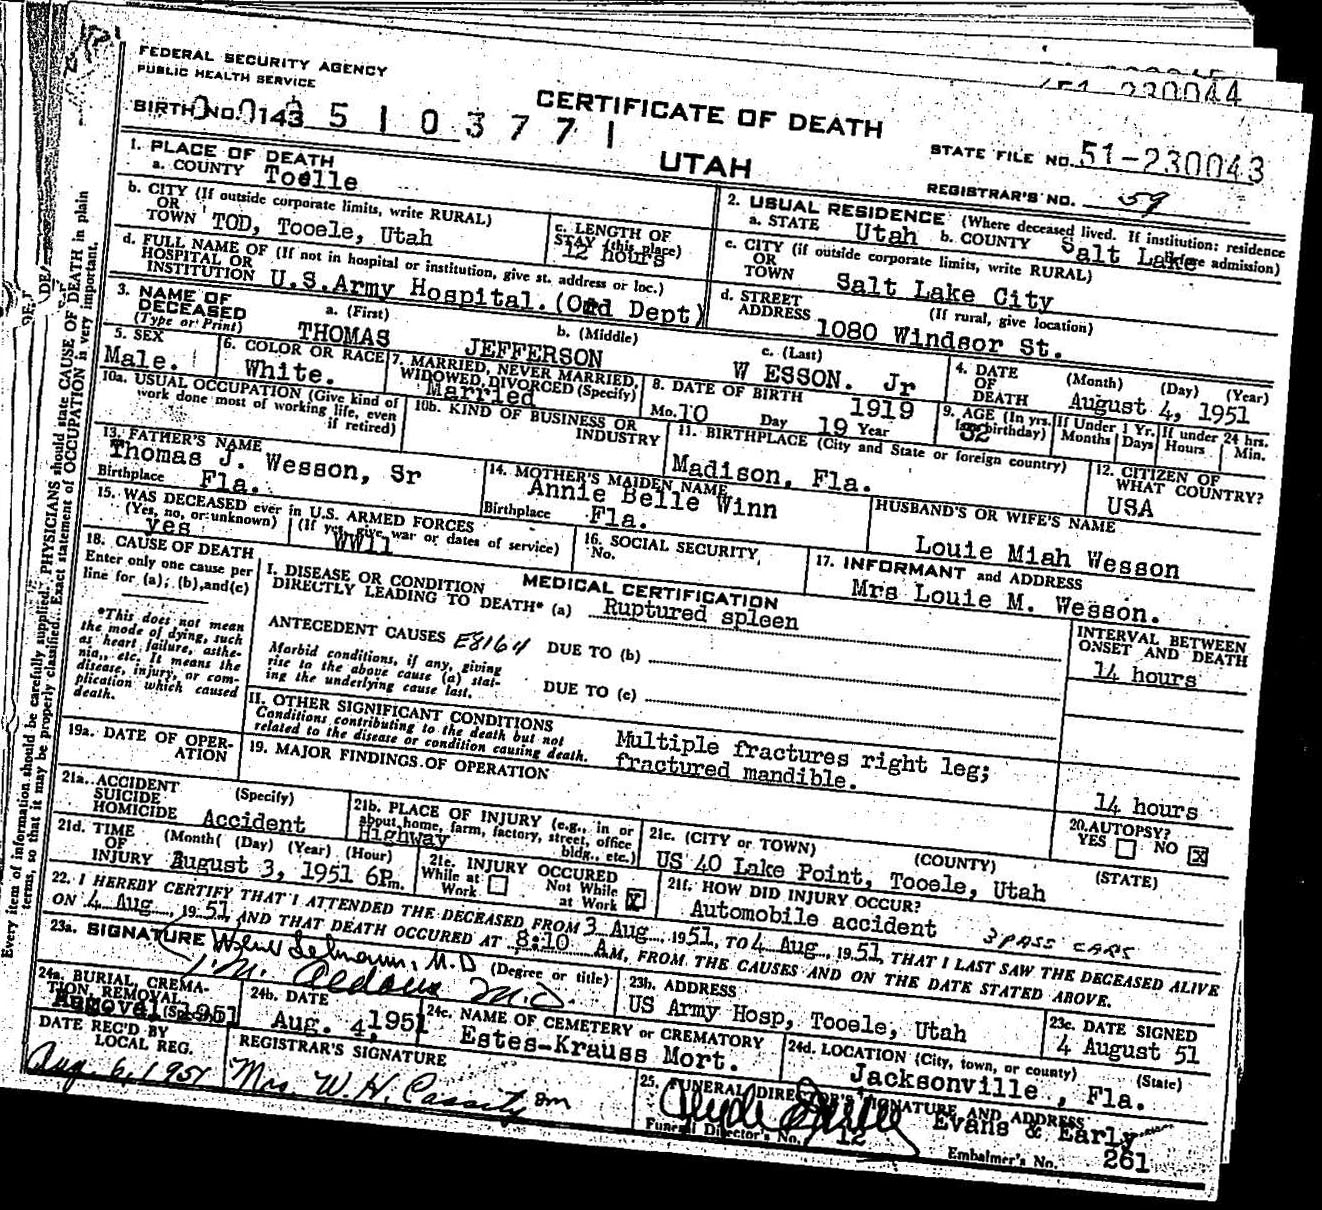 FEDERAL SECURITY AGENCY
PUBLIC HEALTH SERVICE
51-230044
BIRTH No. 0143 5 1 0 3 7 7 1
CERTIFICATE OF DEATH
UTAH
STATE FILE NO. 51-230043
REGISTRAR'S NO. 59
1. PLACE OF DEATH
a. COUNTY Toelle
b. CITY (If outside corporate limits, write RURAL)
OR
TOWN TOD, Tooele, Utah
c. LENGTH OF
STAY (this place)
12 hours
d. FULL NAME OF (If not in hospital or institution, give st. address or loc.)
HOSPITAL OR
INSTITUTION U.S.Army Hospital.(Ord Dept)
2. USUAL RESIDENCE (Where deceased lived. If institution: residence
before admission)
a. STATE Utah b. COUNTY Salt Lake
c. CITY (if outside corporate limits, write RURAL)
OR
TOWN Salt Lake City
d. STREET (If rural, give location)
ADDRESS 1080 Windsor St.
3. NAME OF
DECEASED
(Type or Print)
a. (First) THOMAS
b. (Middle) JEFFERSON
c. (Last) W ESSON. Jr
4. DATE (Month) (Day) (Year)
OF
DEATH August 4, 1951
5. SEX
Male.
6. COLOR OR RACE
White.
7. MARRIED, NEVER MARRIED,
WIDOWED, DIVORCED (Specify)
Married
8. DATE OF BIRTH
Mo. 10 Day 19 Year 1919
9. AGE (In yrs. last birthday)
32
If Under 1 Yr.
Months Days
If under 24 hrs.
Hours Min.
10a. USUAL OCCUPATION (Give kind of
work done most of working life, even
if retired)
10b. KIND OF BUSINESS OR
INDUSTRY
11. BIRTHPLACE (City and State or foreign country)
Madison, Fla.
12. CITIZEN OF
WHAT COUNTRY?
USA
13. FATHER'S NAME
Thomas J. Wesson, Sr
Birthplace Fla.
14. MOTHER'S MAIDEN NAME
Annie Belle Winn
Birthplace Fla.
HUSBAND'S OR WIFE'S NAME
Louie Miah Wesson
15. WAS DECEASED ever in U.S. ARMED FORCES
(Yes, no, or unknown) (If yes, give war or dates of service)
yes WW11
16. SOCIAL SECURITY
No.
17. INFORMANT and ADDRESS
Mrs Louie M. Wesson.
18. CAUSE OF DEATH
Enter only one cause per
line for (a), (b), and(c)
*This does not mean
the mode of dying, such
as heart failure, asthe-
nia, etc. It means the
disease, injury, or com-
plication which caused
death.
MEDICAL CERTIFICATION
I. DISEASE OR CONDITION
DIRECTLY LEADING TO DEATH* (a) Ruptured spleen
ANTECEDENT CAUSES E8164 DUE TO (b)
Morbid conditions, if any, giving
rise to the above cause (a) stat-
ing the underlying cause last.
DUE TO (c)
INTERVAL BETWEEN
ONSET AND DEATH
14 hours
II. OTHER SIGNIFICANT CONDITIONS
Conditions contributing to the death but not
related to the disease or condition causing death.
Multiple fractures right leg;
fractured mandible.
14 hours
19a. DATE OF OPER-
ATION
19. MAJOR FINDINGS OF OPERATION
20. AUTOPSY?
YES NO X
21a. ACCIDENT
SUICIDE
HOMICIDE
(Specify)
Accident
21b. PLACE OF INJURY (e.g., in or
about home, farm, factory, street, office
bldg., etc.)
Highway
21c. (CITY or TOWN) (COUNTY) (STATE)
US 40 Lake Point, Tooele, Utah
21d. TIME (Month) (Day) (Year) (Hour)
OF
INJURY August 3, 1951 6Pm.
21e. INJURY OCCURED
While at Work
Not While at Work X
21f. HOW DID INJURY OCCUR?
Automobile accident 3 PASS CARS
22. I HEREBY CERTIFY THAT I ATTENDED THE DECEASED FROM 3 Aug, 1951, TO 4 Aug, 1951, THAT I LAST SAW THE DECEASED ALIVE
ON 4 Aug, 1951, AND THAT DEATH OCCURED AT 8:10 AM, FROM THE CAUSES AND ON THE DATE STATED ABOVE.
23a. SIGNATURE M.D (Degree or title)
M.D.
23b. ADDRESS
US Army Hosp, Tooele, Utah
23c. DATE SIGNED
4 August 51
24a. BURIAL, CREMA-
TION, REMOVAL (Specify)
Removal 1951
24b. DATE
Aug. 4, 1951
24c. NAME OF CEMETERY or CREMATORY
Estes-Krauss Mort.
24d. LOCATION (City, town, or county) (State)
Jacksonville, Fla.
DATE REC'D BY
LOCAL REG.
Aug. 6, 1951
REGISTRAR'S SIGNATURE
Mrs. W. H. Cassity
25. FUNERAL DIRECTOR'S SIGNATURE AND ADDRESS
Evans & Early
Funeral Director's No. 12
Embalmer's No. 261
Every item of information should be carefully supplied. PHYSICIANS should state CAUSE OF DEATH in plain
terms, so that it may be properly classified. Exact statement of OCCUPATION is very important.